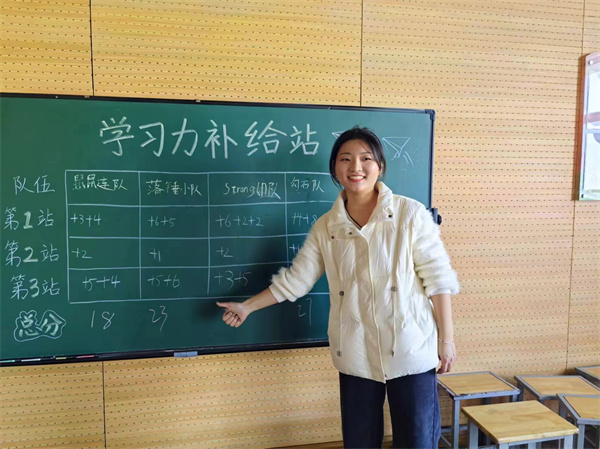 学习力补给站
队伍 鼠鼠连队 落锤小队 Strong组队 勾石队
第1站 +3+4 +6+5 +6+2+2 +4+8
第2站 +2 +1 +2
第3站 +5+4 +5+6 +3+5
总分 18 23 27